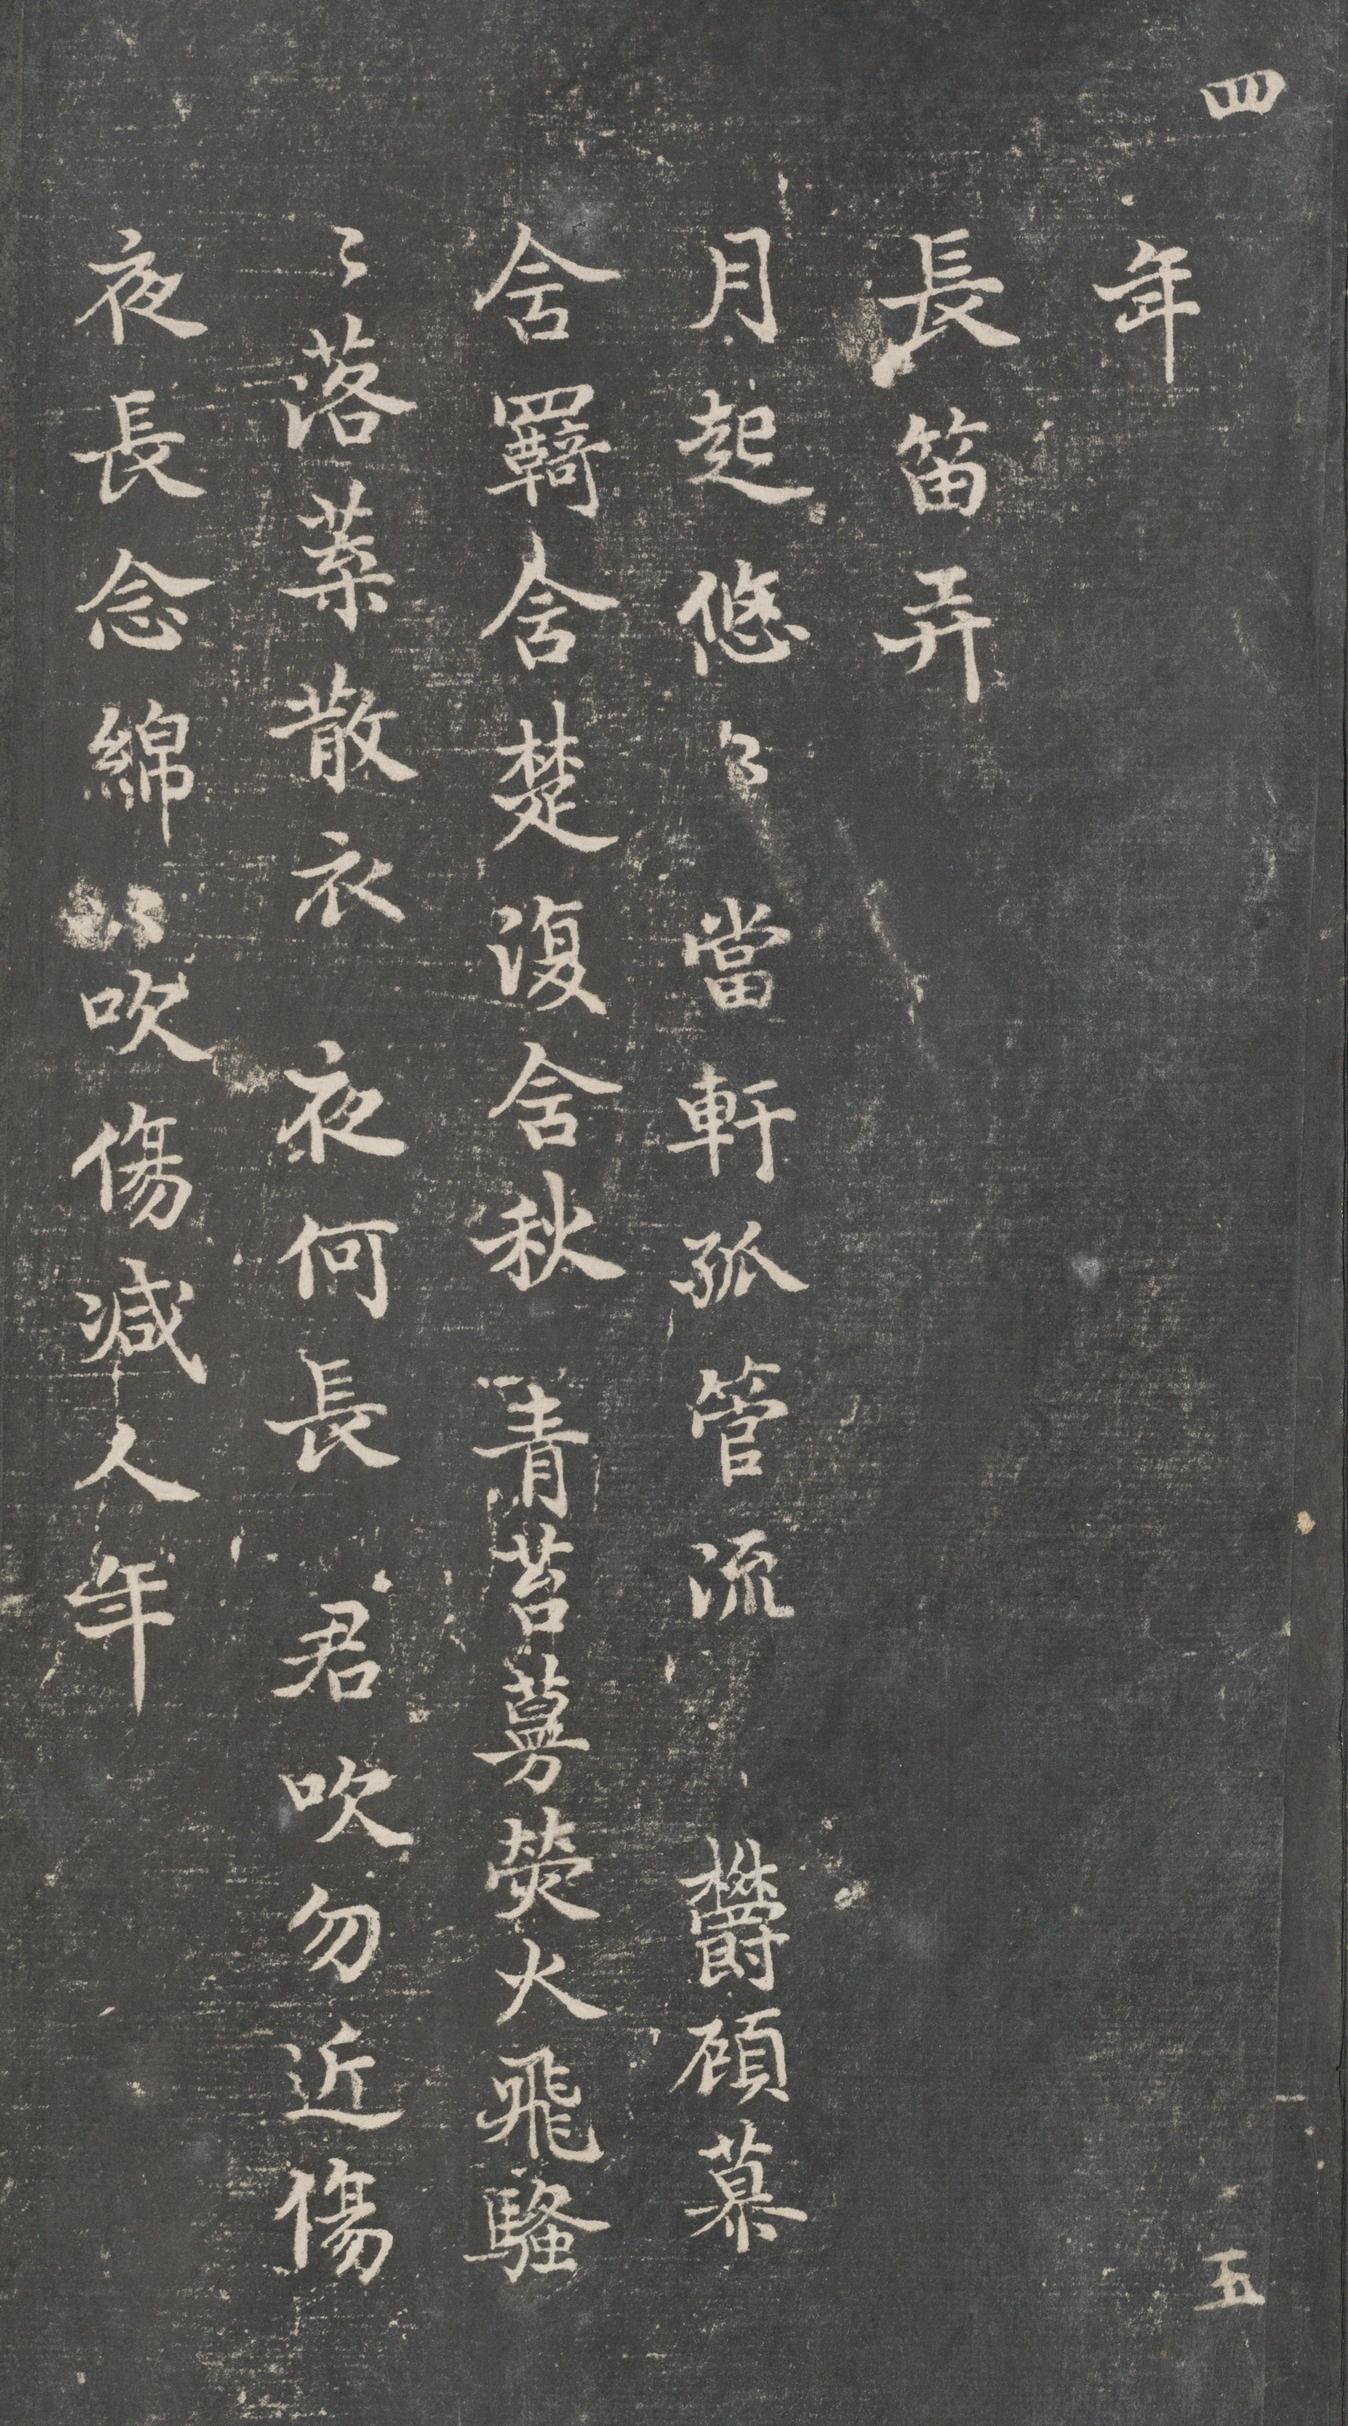 四
年
長笛弄
月起悠〻當軒孤管流欝顧慕
含羇含楚復含秋青苔蔓荧火飛騷
〻落葉散衣夜何長君吹勿近傷
夜長念綿〻吹傷減人年
五